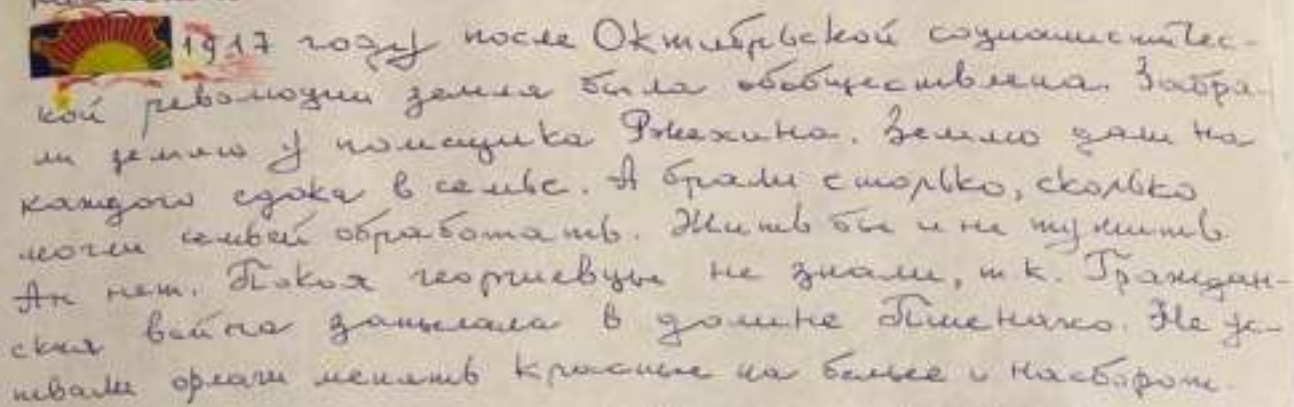 1917 году после Октябрьской социалистичес-
кой революции земля была обобществлена. Забра-
ли землю у помещика Ржехина. Землю дали на
каждого едока в семье. А брали столько, сколько
могли семьёй обработать. Жить бы и не тужить
Ан нет. Покоя георгиевцы не знали, т.к. Граждан-
ская война запылала в долине Пшенахо. Не ус-
певали флаги менять красные на белые и наоборот.